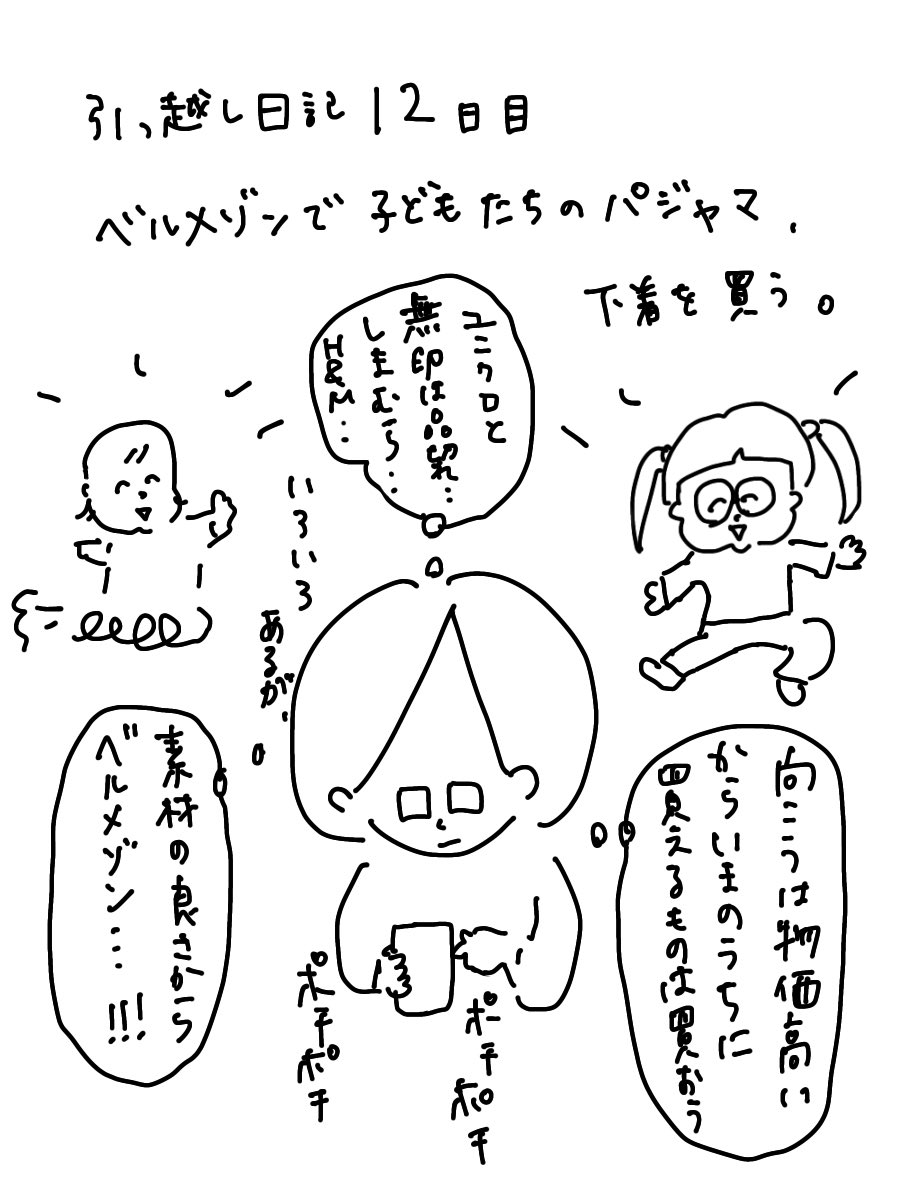 引っ越し日記12日目
ベルメゾンで子どもたちのパジャマ、
下着を買う。
ユニクロと
無印は品切れ…
しまむら…
H&M…
いろいろ
あるが、
向こうは物価高い
からいまのうちに
買えるものは買おう
素材の良さから
ベルメゾン…!!!
ポチポチ
ポチポチ